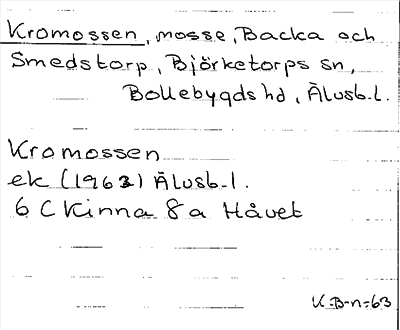 Kromossen, mosse, Backa och
Smedstorp, Björketorps sn,
Bollebygds hd, Älvsb. l.
Kromossen
ek (1963) Älvsb. l.
6 C Kinna 8 a Håvet
K-B-n-63